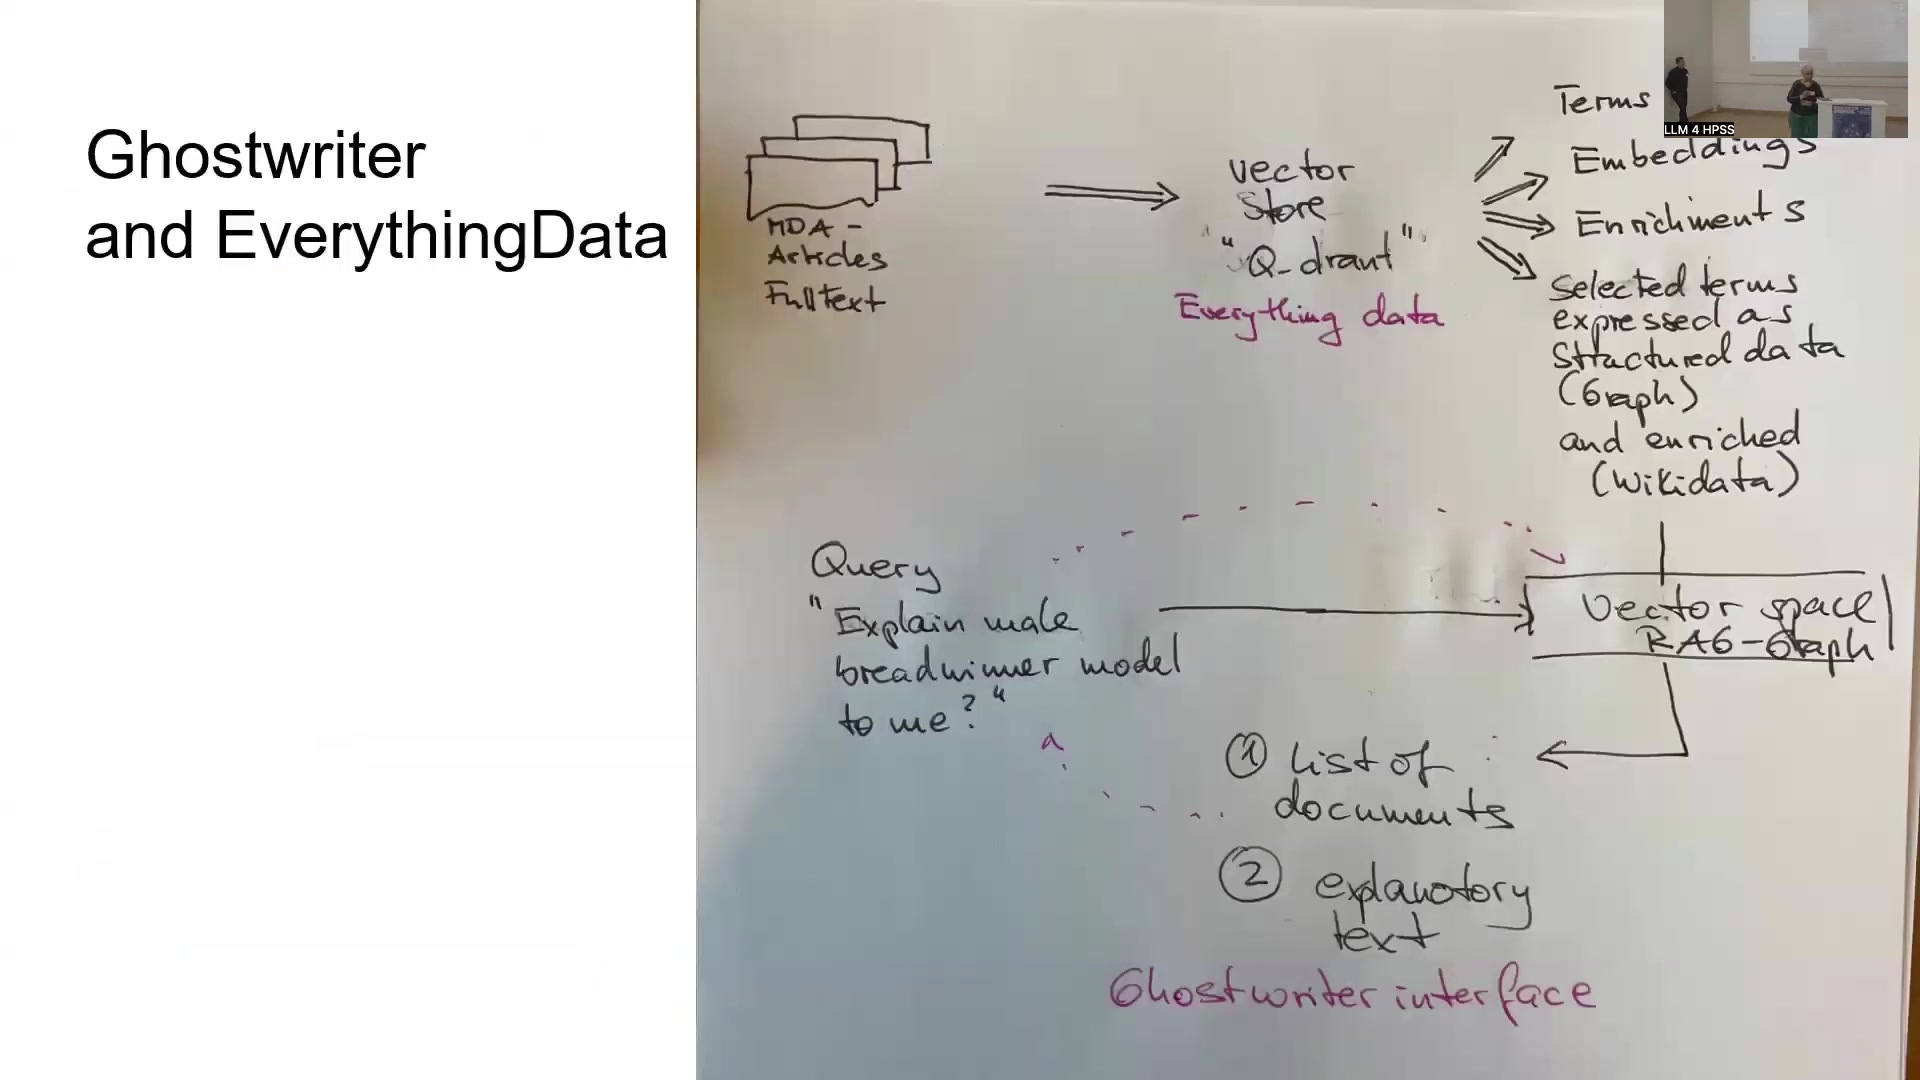 Ghostwriter
and EverythingData
MDA -
Articles
Fulltext
vector
store
"Q-drant"
Everything data
Terms
Embeddings
Enrichments
selected terms
expressed as
structured data
(Graph)
and enriched
(Wikidata)
Query
"Explain male
breadwinner model
to me?"
Vector space
RAG-Graph
① list of
documents
② explanatory
text
Ghostwriter interface
LLM 4 HPSS